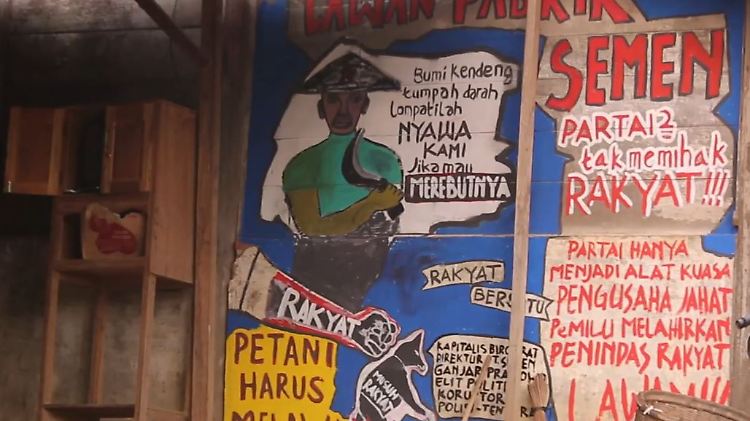 LAWAN PABRIK
SEMEN
Bumi kendeng
tumpah darah
lompatilah
NYAWA
KAMI
Jika mau
MEREBUTNYA
PARTAI2
tak memihak
RAKYAT!!!
RAKYAT
BERSATU
PARTAI HANYA
MENJADI ALAT KUASA
PENGUSAHA JAHAT
PEMILU MELAHIRKAN
PENINDAS RAKYAT
LAWAN!!
RAKYAT
PETANI
HARUS
MUSUH
RAKYAT
KAPITALIS BIROKRAT
DIREKTUR
GANJAR
ELIT POLITI
KORUPTOR